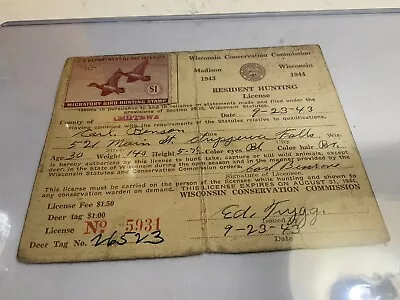 U.S. DEPARTMENT OF THE INTERIOR
$1
MIGRATORY BIRD HUNTING STAMP
Wisconsin Conservation Commission
Madison Wisconsin
1943 1944
RESIDENT HUNTING
License
Issued in pursuance to and in reliance on statements made and filed under the
provisions of Section 29.10, Wisconsin Statutes
County of CHIPPEWA 9-23-43
Date
having complied with the requirements of the Statutes relative to qualifications
Carl Benson
521 Main St. Chippewa Falls, Wis.
Age 30 Weight 140 Height 5-7 Color hair Bn
is hereby authorized to this license to hunt, take, capture or kill wild animals except
Wisconsin Statutes and Conservation Commission
Carl Benson
Signature of Licensee.
This license must be carried on the person of the licensee while hunting and shown to any
conservation warden on demand. THIS LICENSE EXPIRES ON AUGUST 31, 1944.
WISCONSIN CONSERVATION COMMISSION
License Fee $1.50
Deer tag $1.00
License No 5931
Deer Tag No. 26523
Ed. Trygg
Issued by
9-23-43
Date